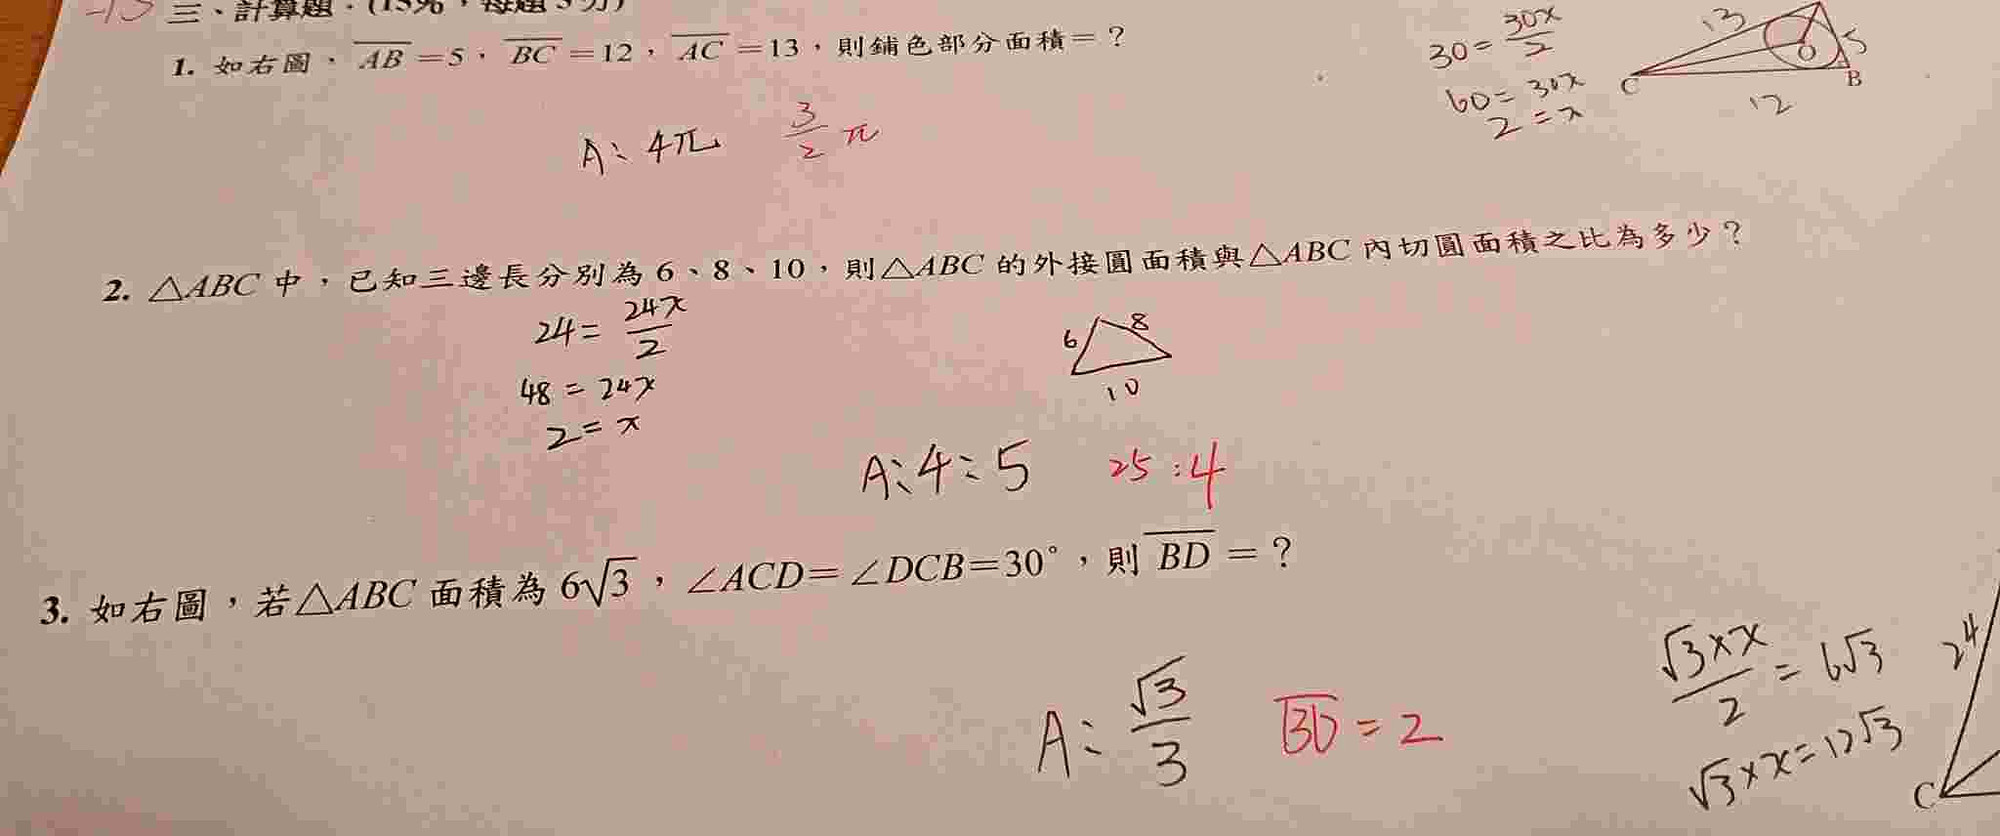 -15 三、計算題：(15%，每題5分)
1. 如右圖，AB=5，BC=12，AC=13，則鋪色部分面積=？
30=30x/2
60=30x
2=x
13
5
O
C
B
12
A：4π
3/2 π
2. △ABC 中，已知三邊長分別為 6、8、10，則△ABC 的外接圓面積與△ABC 內切圓面積之比為多少？
24=24x/2
48=24x
2=x
6
8
10
A：4：5
25:4
3. 如右圖，若△ABC 面積為 6√3，∠ACD=∠DCB=30°，則 BD=？
A：√3/3
BD=2
√3×x/2=6√3
√3×x=12√3
24
C